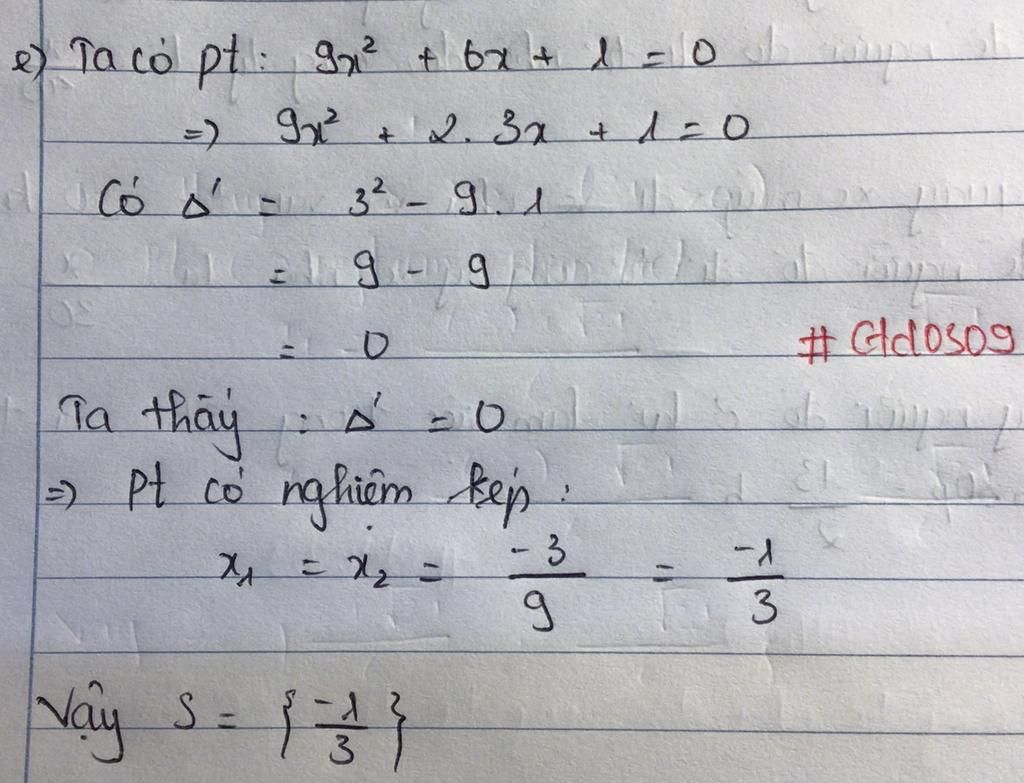 e) Ta có pt: 9x² + 6x + 1 = 0
=> 9x² + 2.3x + 1 = 0
Có Δ' = 3² - 9.1
= 9 - 9
= 0
Ta thấy : Δ' = 0
=> Pt có nghiệm kép:
x₁ = x₂ = -3/9 = -1/3
Vậy S = {-1/3}